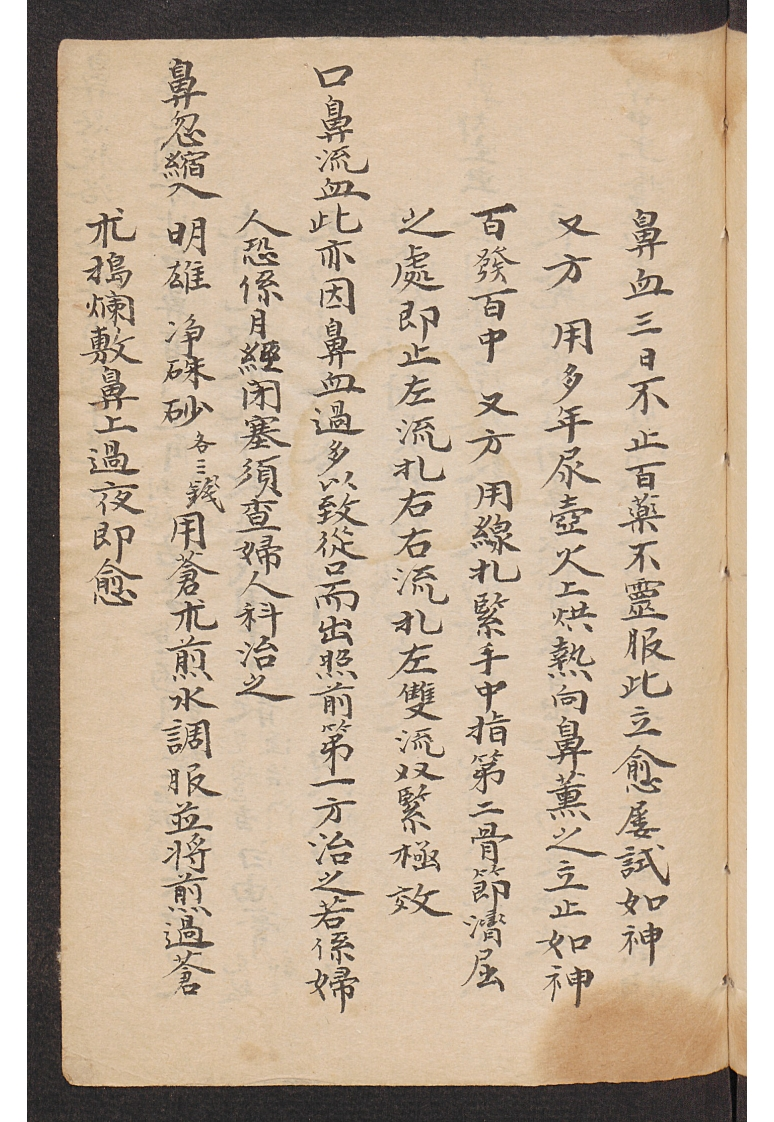 鼻血三日不止百藥不靈服此立愈屢試如神
又方 用多年尿壺火上烘熱向鼻薰之立止如神
百發百中 又方 用線扎緊手中指第二骨節濟屈
之處即止左流扎右右流扎左雙流双緊極效
口鼻流血此亦因鼻血過多以致從口而出照前第一方治之若係婦
人恐係月經閉塞須查婦人科治之
鼻忽縮入 明雄 净硃砂各三錢用蒼朮煎水調服並将煎過蒼
朮搗爛敷鼻上過夜即愈